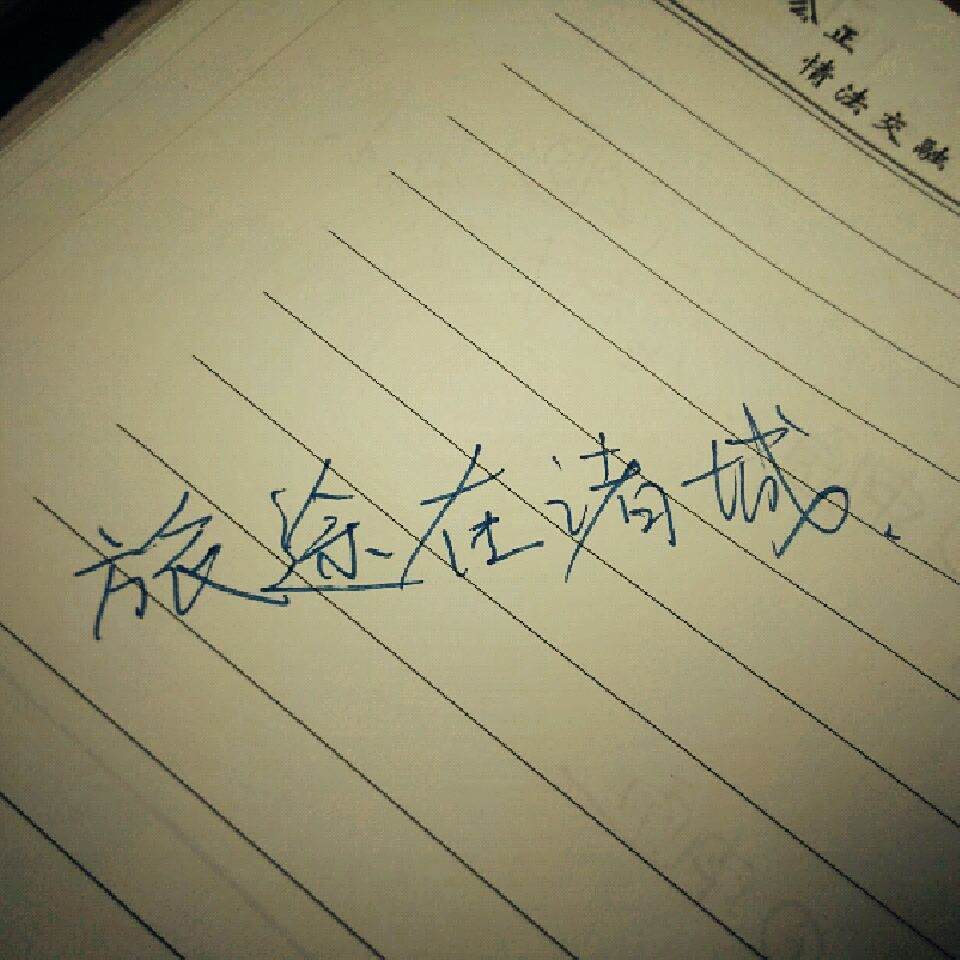 正
情法交融
旅途在诸城。